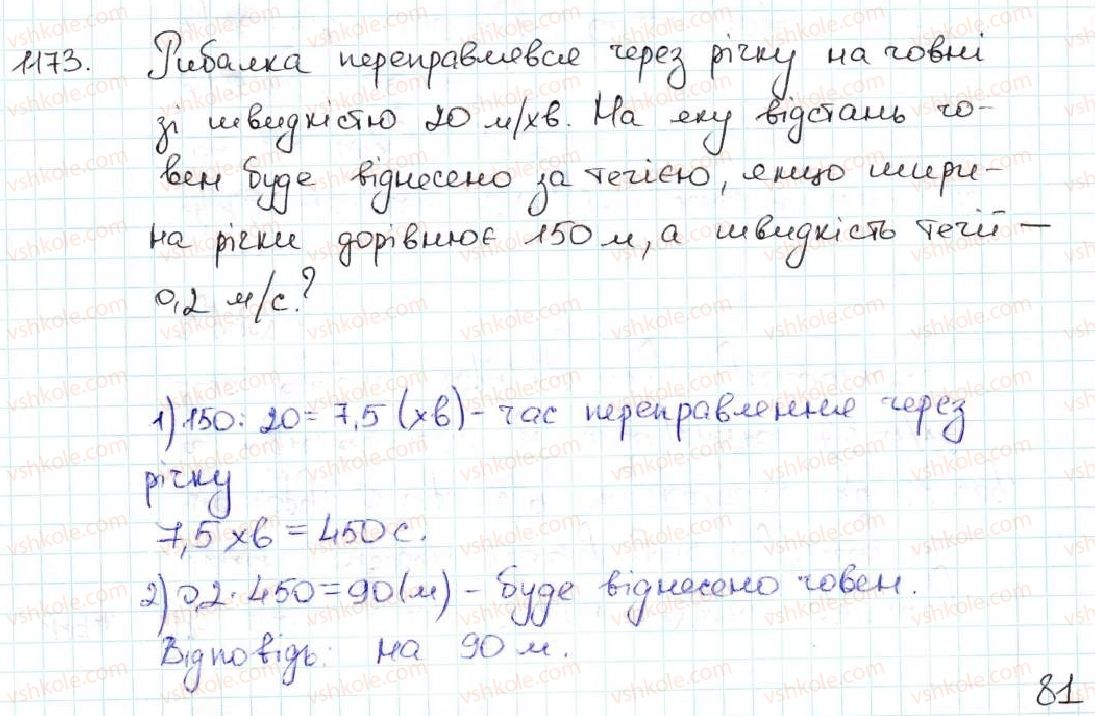 1173. Рибалка переправлявся через річку на човні
зі швидкістю 20 м/хв. На яку відстань чо-
вен буде віднесено за течією, якщо шири-
на річки дорівнює 150 м, а швидкість течії —
0,2 м/с?
1) 150 : 20 = 7,5 (хв) - час переправлення через
річку
7,5 хв = 450 с.
2) 0,2 · 450 = 90 (м) - буде віднесено човен.
Відповідь: на 90 м.
81